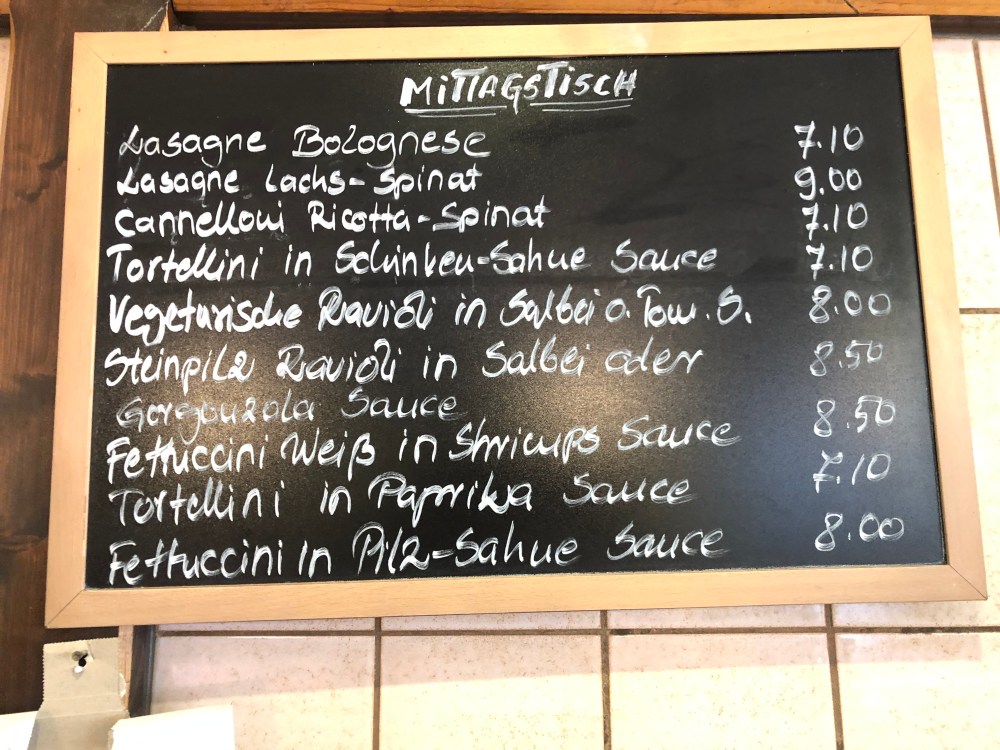 MITTAGSTISCH
Lasagne Bolognese 7.10
Lasagne Lachs-Spinat 9.00
Cannelloni Ricotta-Spinat 7.10
Tortellini in Schinken-Sahne Sauce 7.10
Vegetarische Ravioli in Salbei o. Tom. S. 8.00
Steinpilz Ravioli in Salbei oder 8.50
Gorgonzola Sauce
Fettuccini Weiß in Shrimps Sauce 8.50
Tortellini in Paprika Sauce 7.10
Fettuccini in Pilz-Sahne Sauce 8.00